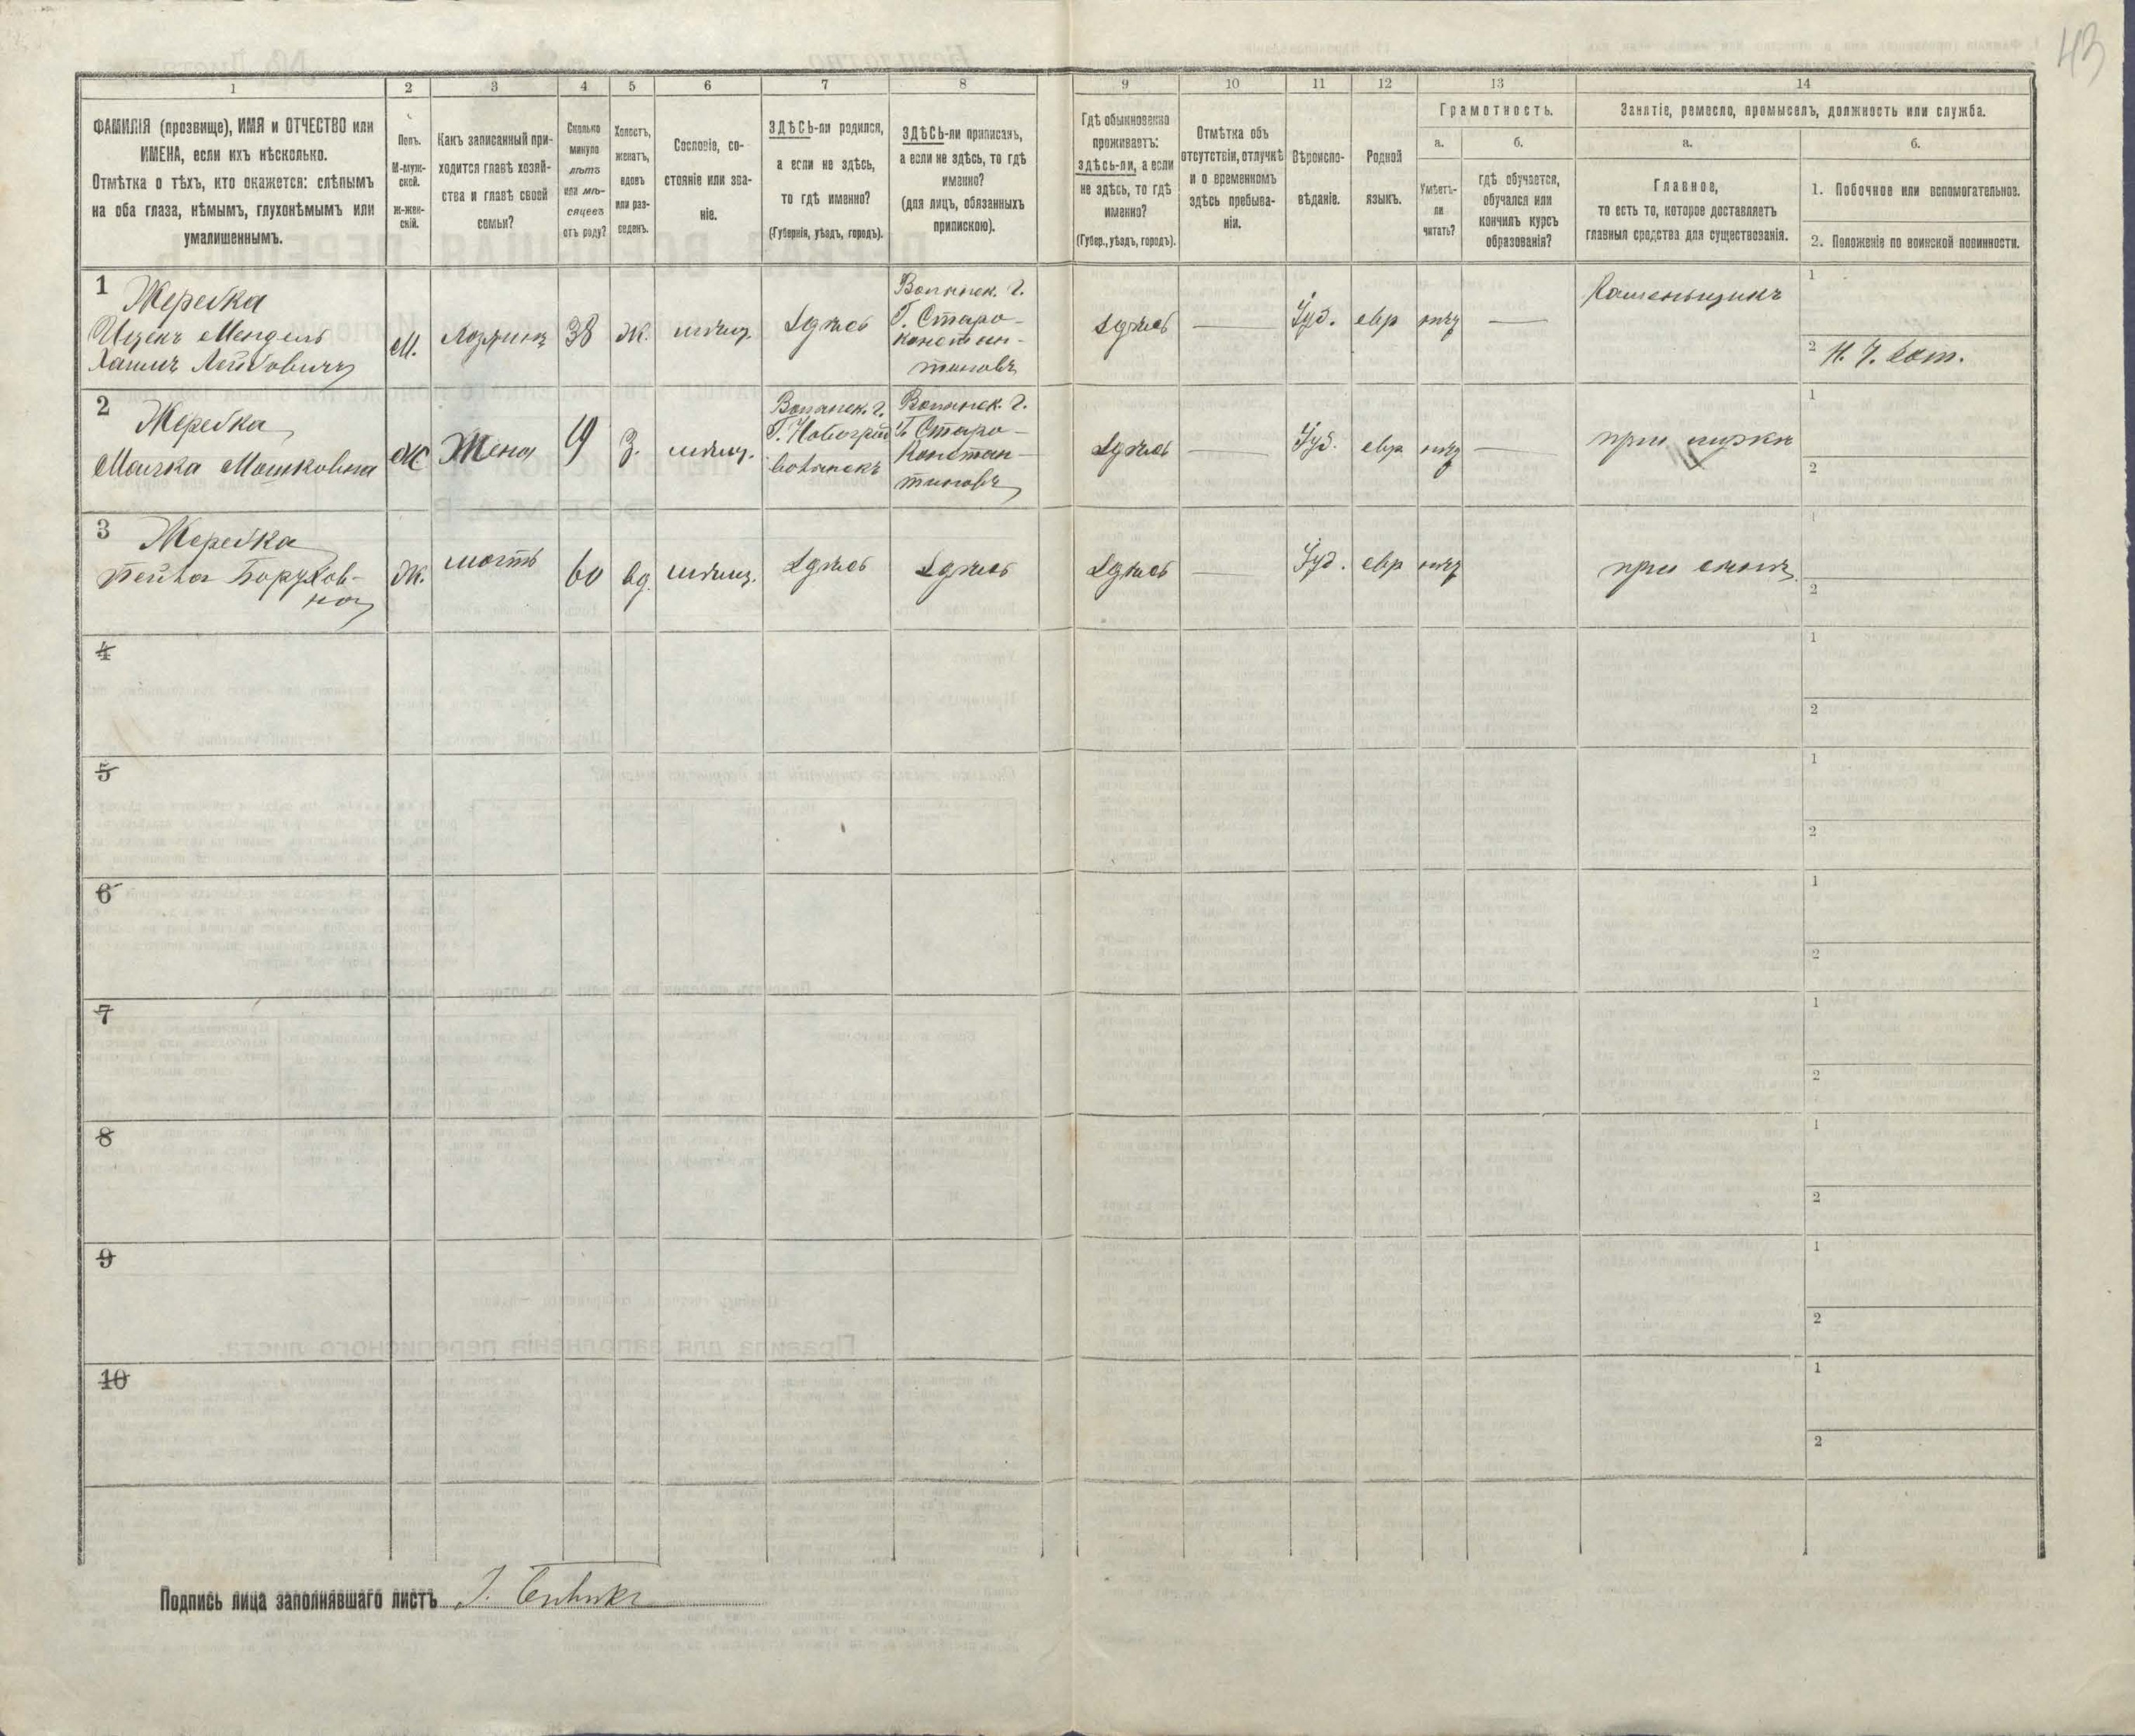 43
1
2
3
4
5
6
7
8
9
10
11
12
13
14
ФАМИЛІЯ (прозвище), ИМЯ и ОТЧЕСТВО или
ИМЕНА, если ихъ нѣсколько.
Отмѣтка о тѣхъ, кто окажется: слѣпымъ
на оба глаза, нѣмымъ, глухонѣмымъ или
умалишеннымъ.
Полъ.
М-муж-
ской.
ж-жен-
скій.
Какъ записанный при-
ходится главѣ хозяй-
ства и главѣ своей
семьи?
Сколько
минуло
лѣтъ
или мѣ-
сяцевъ
отъ роду?
Холостъ,
женатъ,
вдовъ
или раз-
веденъ.
Сословіе, со-
стояніе или зва-
ніе.
ЗДѢСЬ-ли родился,
а если не здѣсь,
то гдѣ именно?
(Губернія, уѣздъ, городъ).
ЗДѢСЬ-ли приписанъ,
а если не здѣсь, то гдѣ
именно?
(для лицъ, обязанныхъ
припискою).
Гдѣ обыкновенно
проживаетъ:
здѣсь-ли, а если
не здѣсь, то гдѣ
именно?
(Губер., уѣздъ, городъ).
Отмѣтка объ
отсутствіи, отлучкѣ
и о временномъ
здѣсь пребыва-
ніи.
Вѣроиспо-
вѣданіе.
Родной
языкъ.
Грамотность.
а.
Умѣетъ-
ли
читать?
б.
гдѣ обучается,
обучался или
кончилъ курсъ
образованія?
Занятіе, ремесло, промыселъ, должность или служба.
а.
Главное,
то есть то, которое доставляетъ
главныя средства для существованія.
б.
1. Побочное или вспомогательное.
2. Положеніе по воинской повинности.
1
Жеребка
Ицекъ Мендель
Хаимъ Лейбовичъ
М.
Хозяинъ
38
Ж.
мѣщ.
Здѣсь
Волынск. г.
Г. Старо-
констан-
тиновъ
Здѣсь
Іуд.
евр
нѣтъ
1
2
2
Жеребка
Мошковна
Ж
Жена
19
З.
мѣщ.
Волынск. г.
Г. Новоград
Волынскъ
Волынск. г.
Г. Старо-
Констан-
тиновъ
Здѣсь
Іуд.
евр
нѣтъ
при мужѣ
1
2
3
Жеребка
Бейла Борухов-
на
Ж.
мать
60
вд.
мѣщ.
Здѣсь
Здѣсь
Здѣсь
Іуд.
евр
нѣтъ
при сынѣ
1
2
4
1
2
5
1
2
6
1
2
7
1
2
8
1
2
9
1
2
10
1
2
Подпись лица заполнявшаго листъ